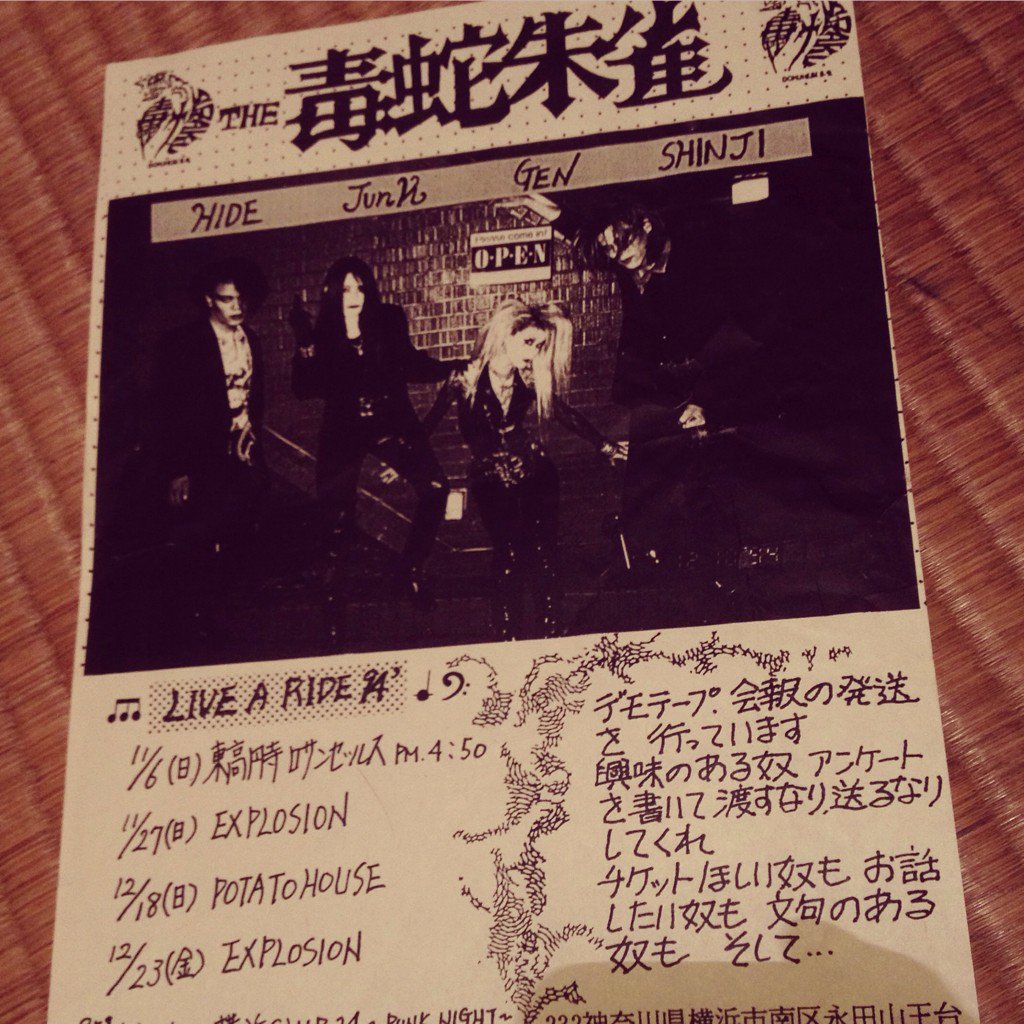 THE 毒蛇朱雀
HIDE JunN GEN SHINJI
Please come in!
O·P·E·N
LIVE A RIDE 94'
11/6(日) 東高円寺 ロサンゼルス PM. 4:50
11/27(日) EXPLOSION
12/18(日) POTATO HOUSE
12/23(金) EXPLOSION
横浜CLUB 24 ~ PUNK NIGHT~
デモテープ. 会報の発送
を 行っています
興味のある奴 アンケート
を書いて渡すなり送るなり
してくれ
チケットほしい奴も お話
したい奴も 文句のある
奴も そして...
232神奈川県横浜市南区永田山王台